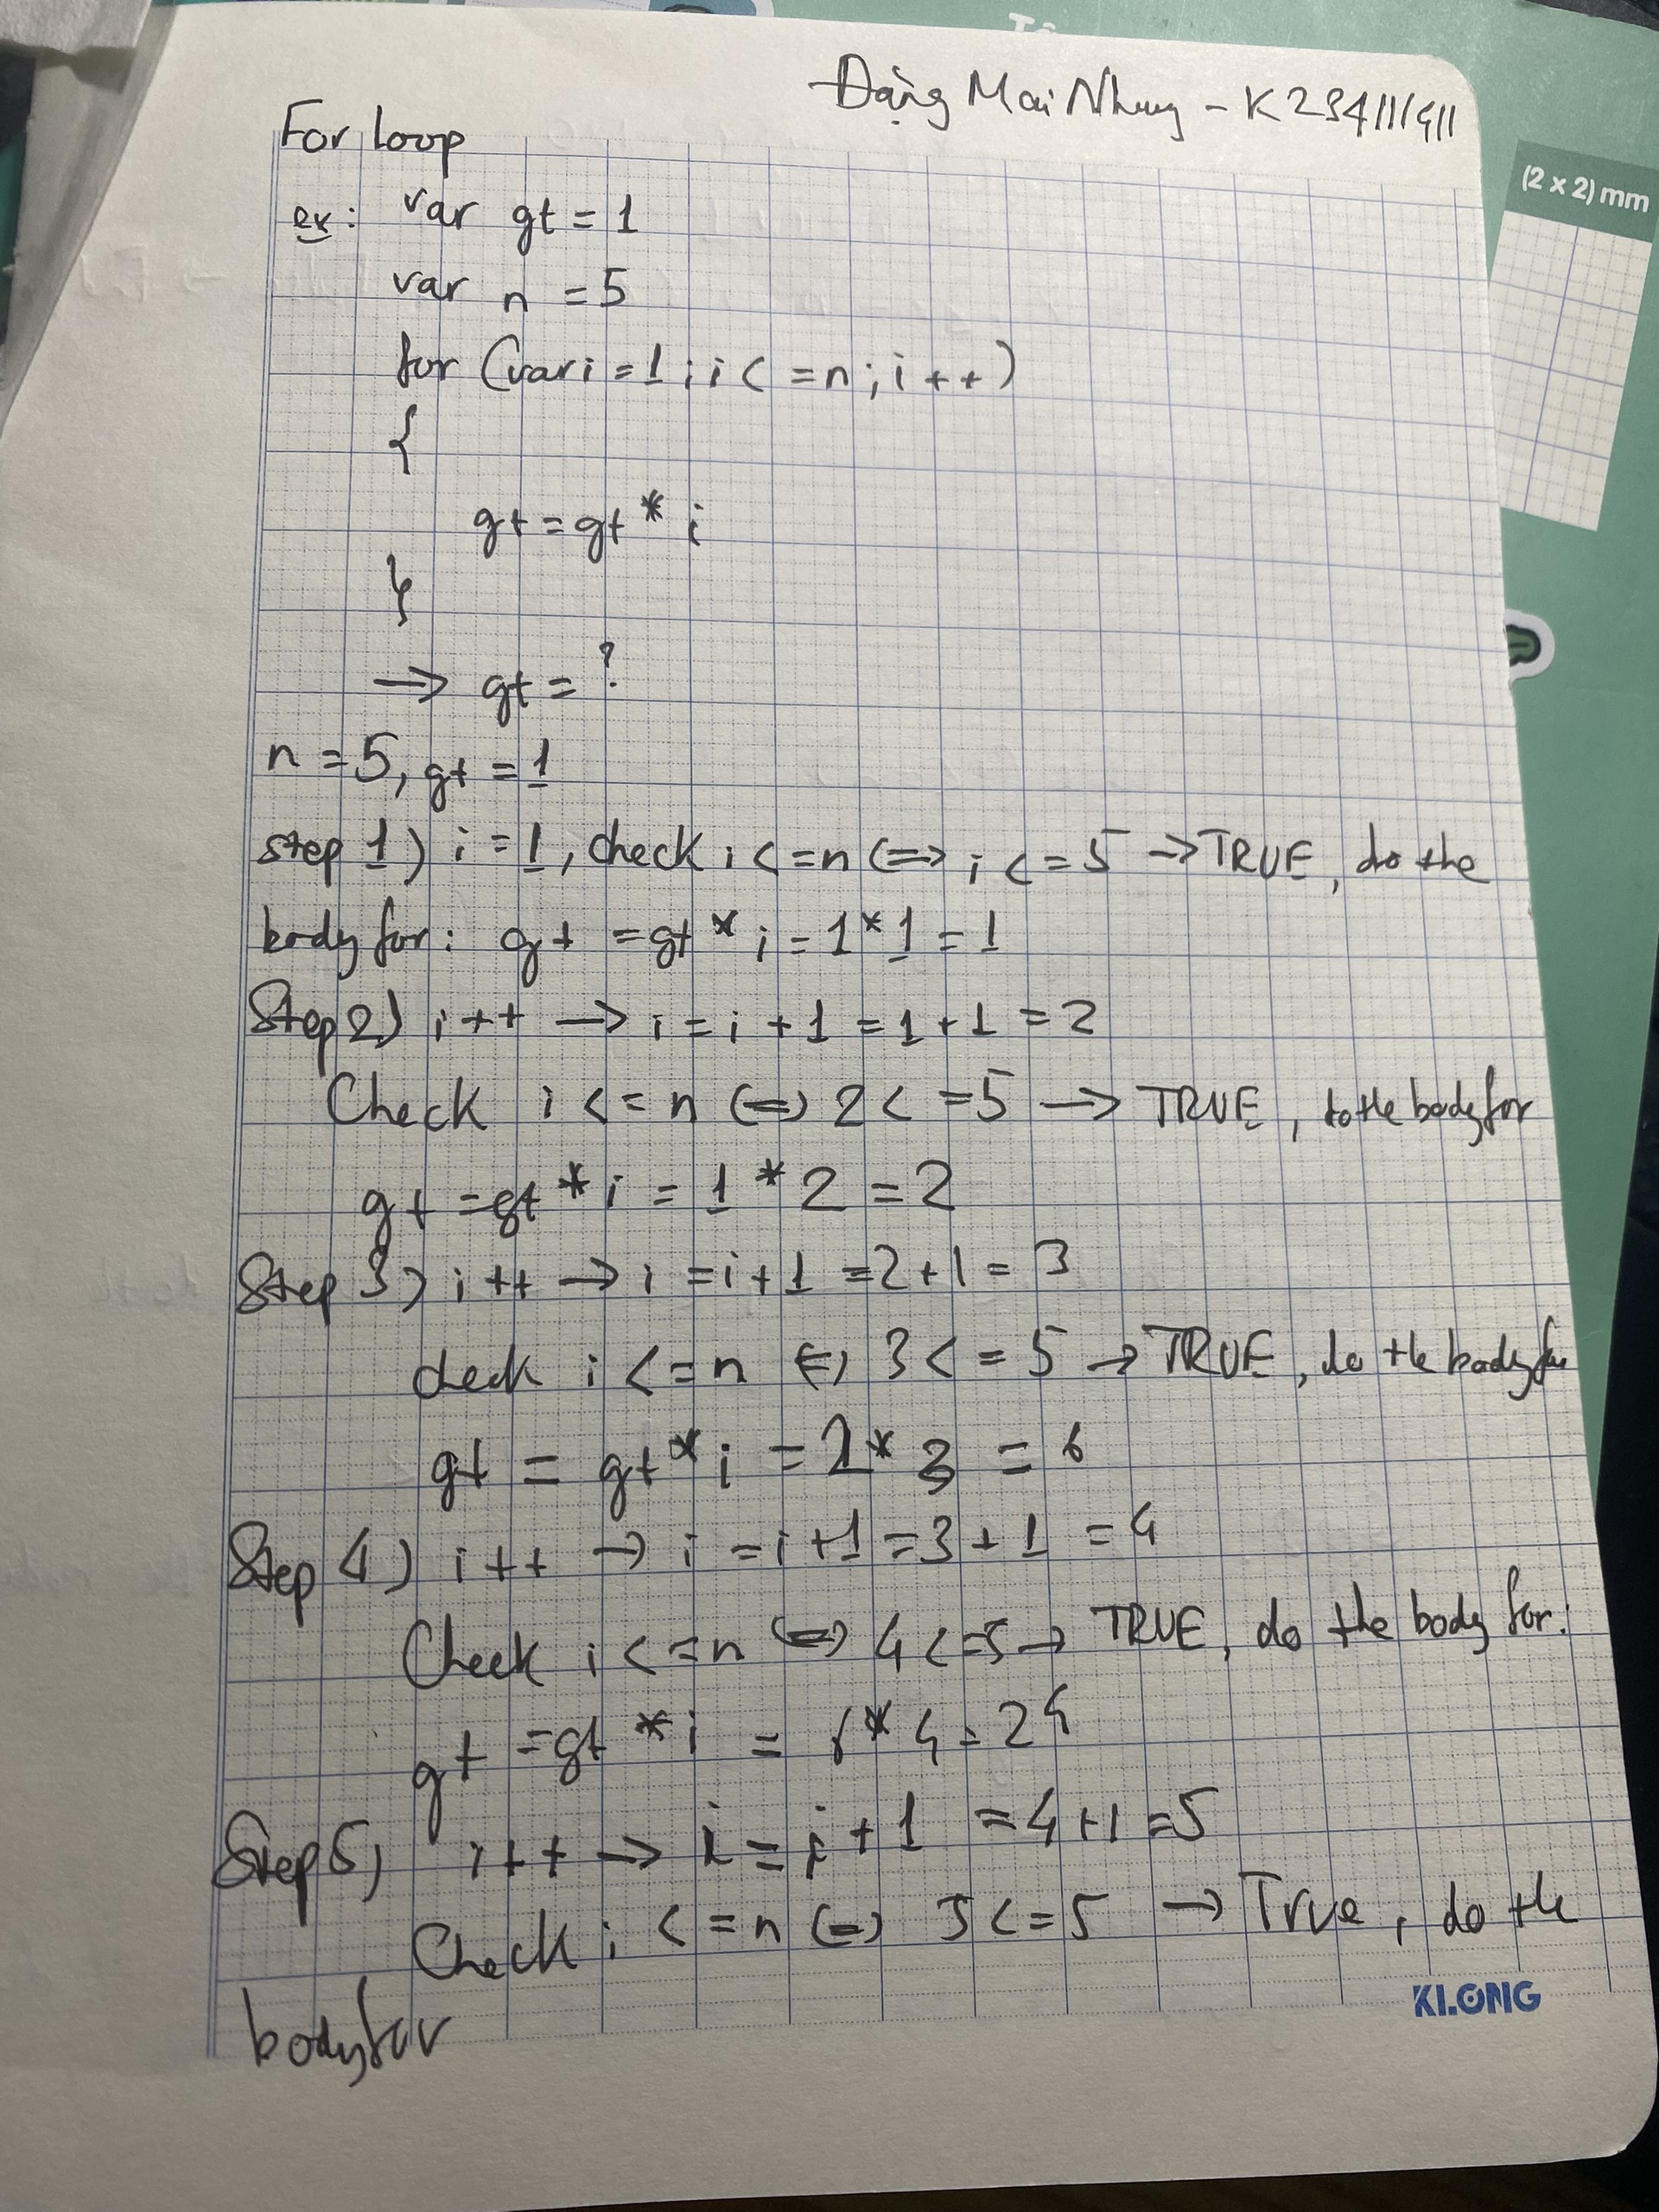 Đặng Mai Nhung - K234111411
For loop
(2 x 2) mm
ex: var gt = 1
var n = 5
for (var i = 1; i < = n; i + +)
{
gt = gt * i
}
→ gt = ?
n = 5, gt = 1
step 1) i = 1, check i < = n <=> i < = 5 → TRUE, do the
body for: gt = gt * i = 1 * 1 = 1
Step 2) i + + → i = i + 1 = 1 + 1 = 2
Check i < = n <=> 2 < = 5 → TRUE, do the body for
gt = gt * i = 1 * 2 = 2
Step 3) i ++ → i = i + 1 = 2 + 1 = 3
check i < = n <=> 3 < = 5 → TRUE, do the body for
gt = gt * i = 2 * 3 = 6
Step 4) i + + → i = i + 1 = 3 + 1 = 4
Check i < = n <=> 4 < = 5 → TRUE, do the body for:
gt = gt * i = 6 * 4 = 24
Step 5) i + + → i = i + 1 = 4 + 1 = 5
Check i < = n <=> 5 < = 5 → True, do the
body for
KLONG